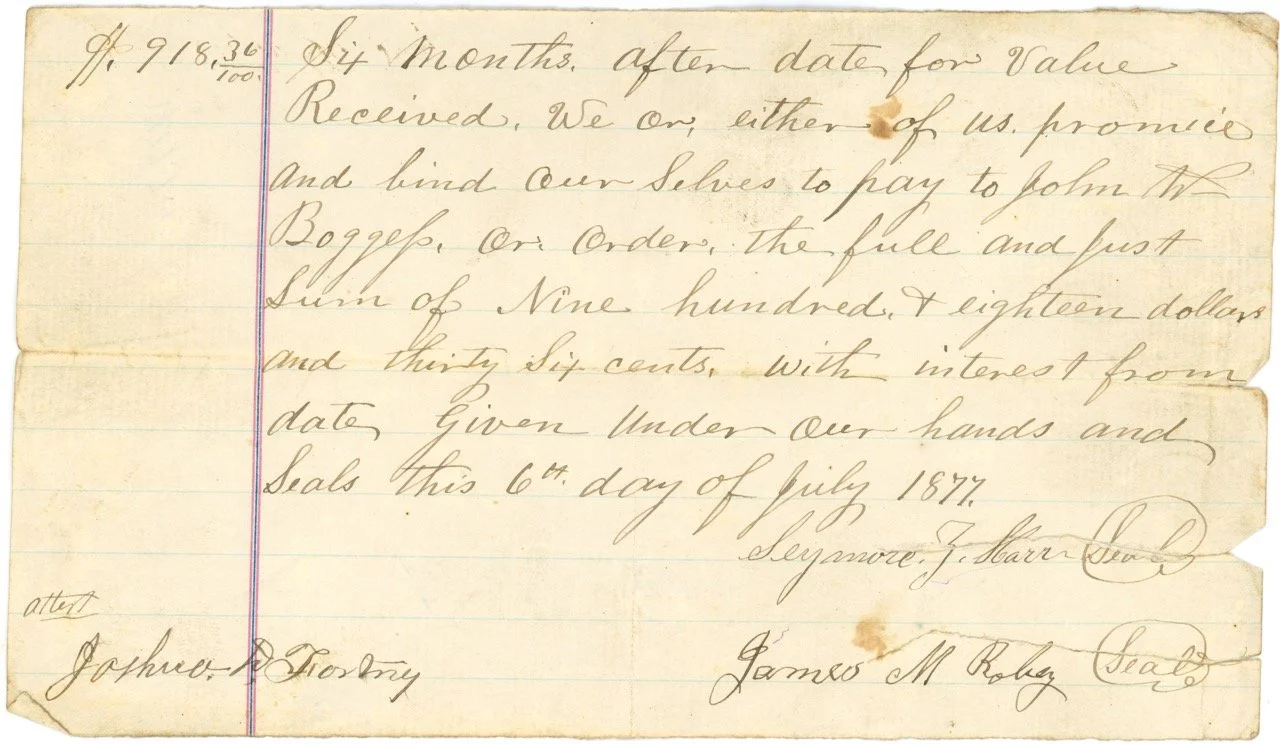 $. 918.36/100. Six Months. after date for Value
Received. We or, either of us. promise
and bind our Selves to pay to John W
Boggess. or order. the full and Just
Sum of Nine hundred. & eighteen dollars
and thirty Six cents. with interest from
date, Given Under our hands and
Seals this 6th. day of July 1877.
Seymore. Z. Harr Seal
attest
Joshua. D. Fortny James M Robey Seal